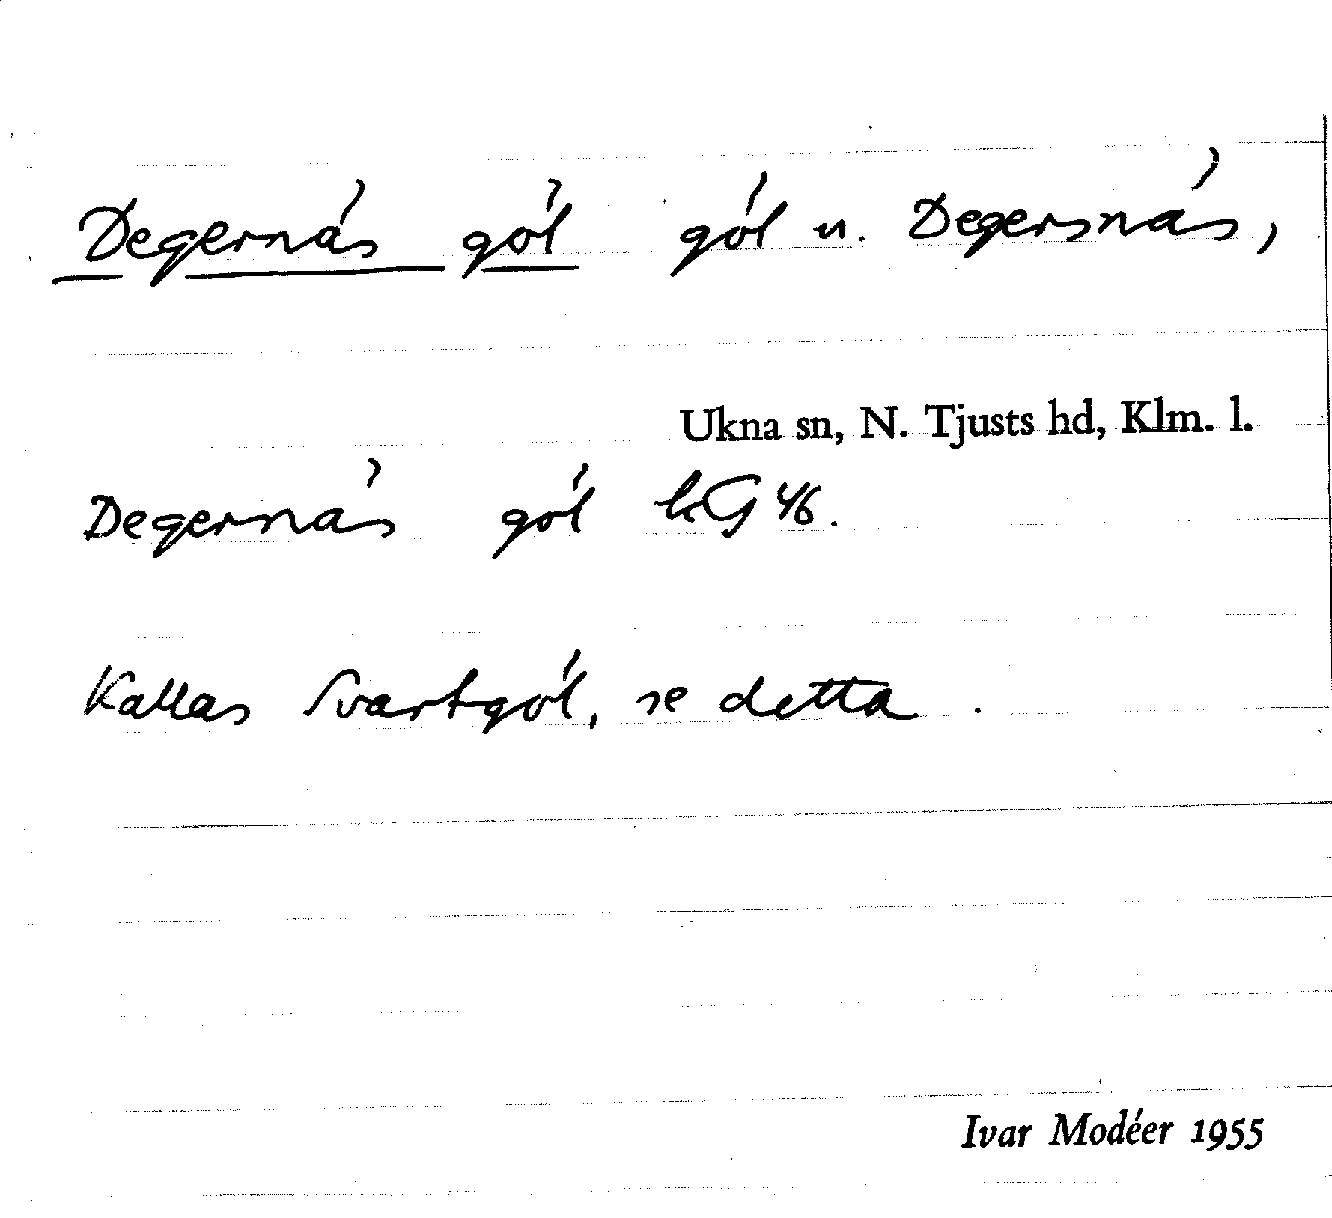 Degernäs göl göl u. Degersnäs,
Ukna sn, N. Tjusts hd, Klm. l.
Degernäs göl kG 4/6.
Kallas Svartgöl, se detta.
Ivar Modéer 1955